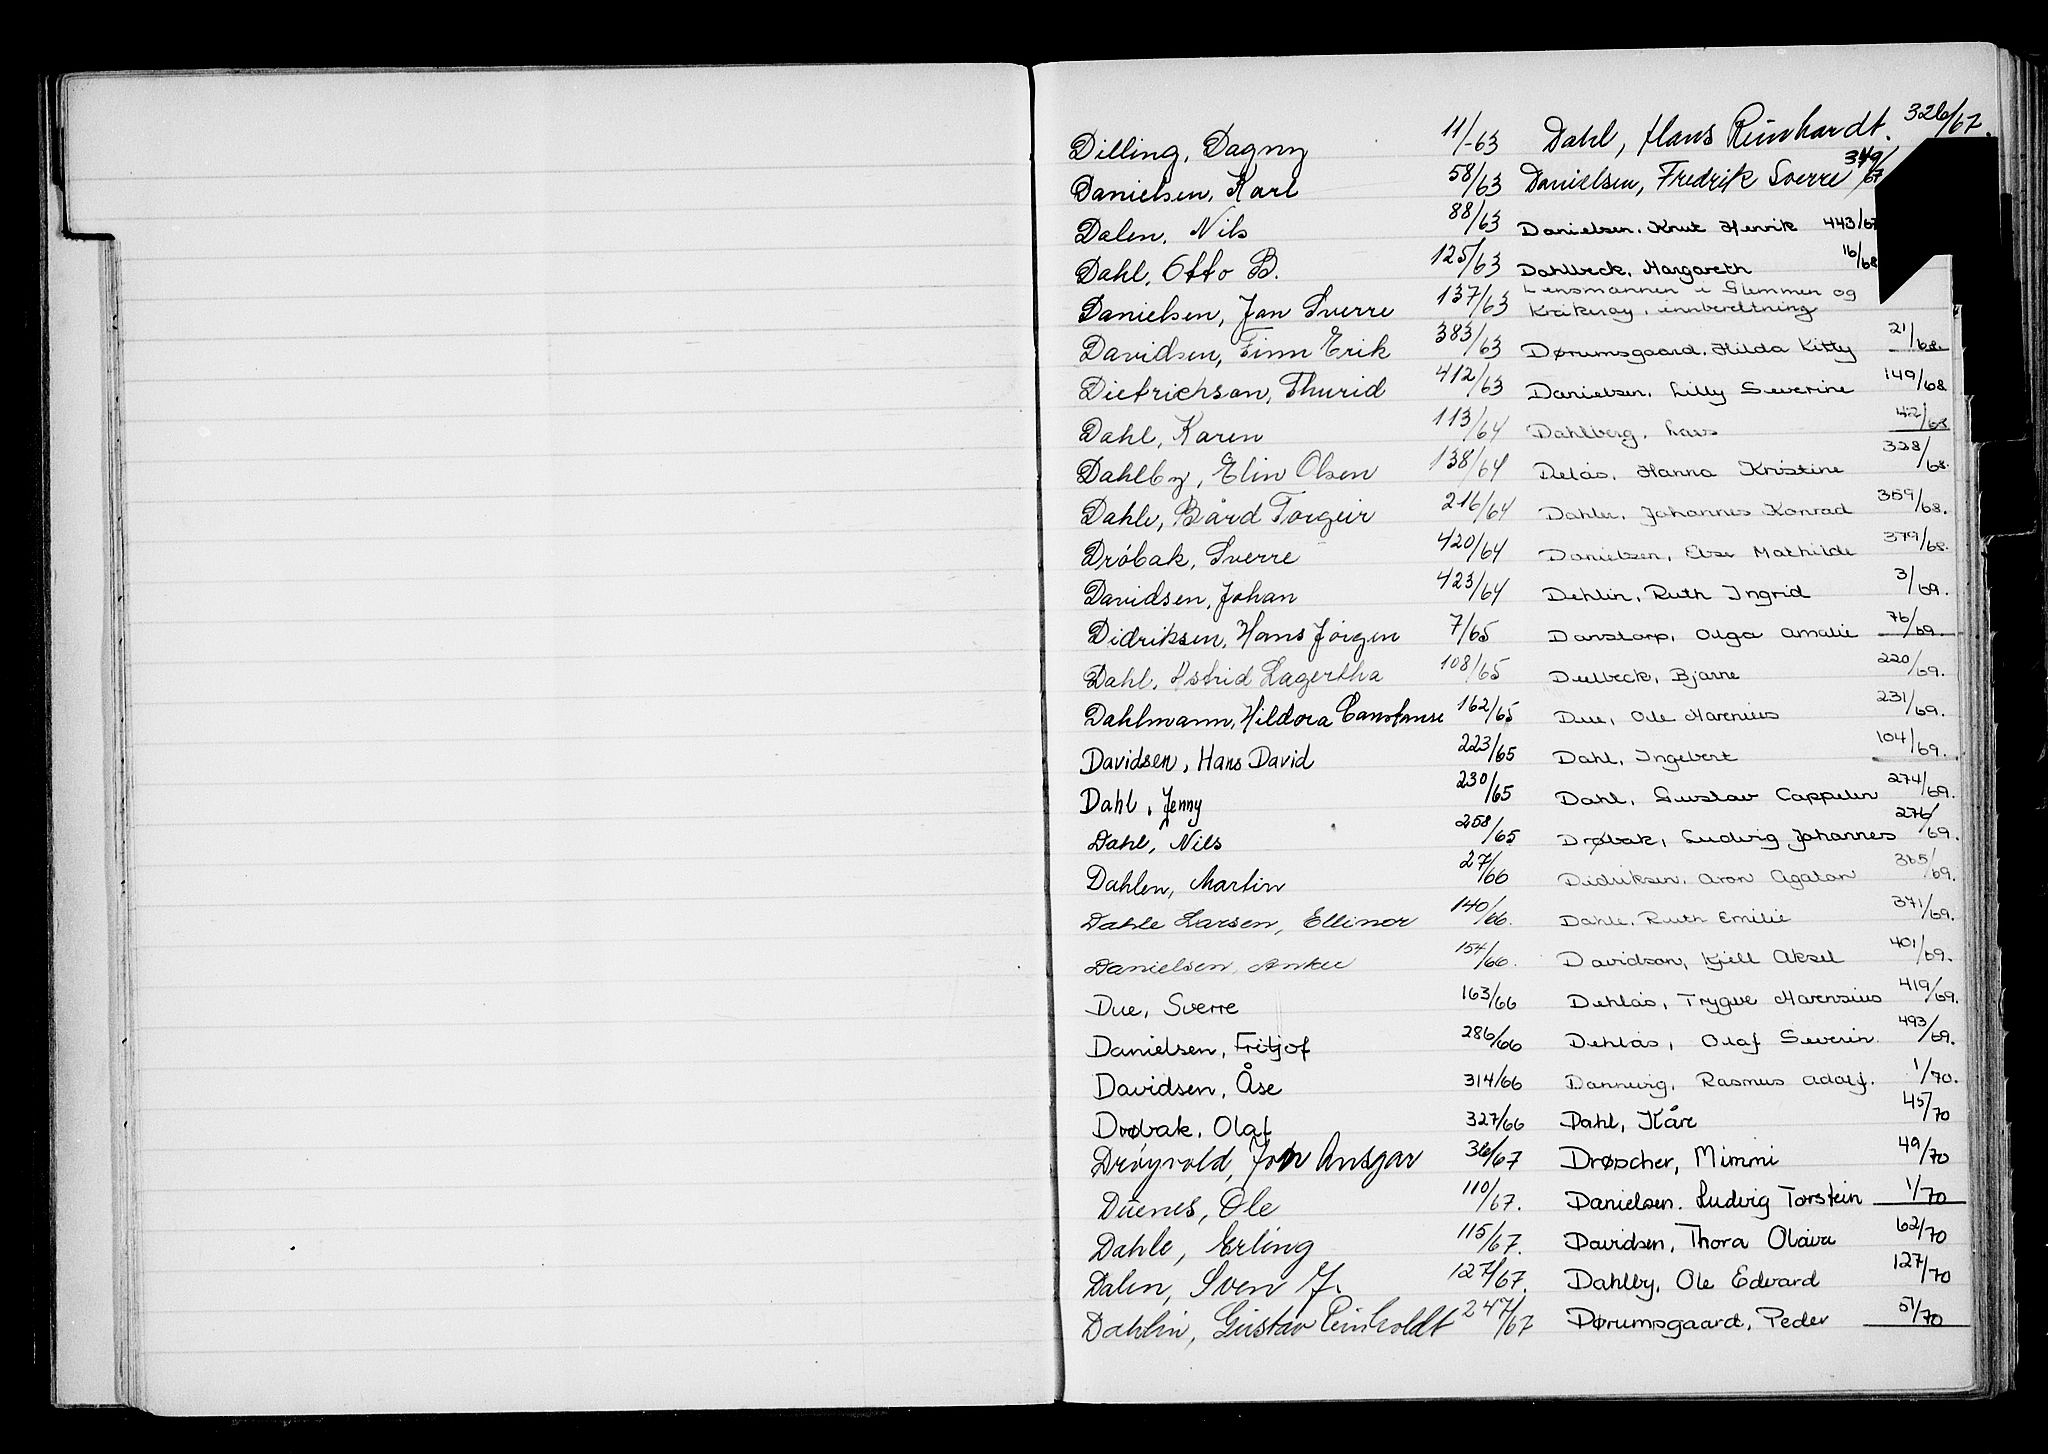 Dilling, Dagny 11/-63
Danielsen, Karl 58/63
Dalen, Nils 88/63
Dahl, Otto B. 125/63
Danielsen, Jan Sverre 137/63
Davidsen, Finn Erik 383/63
Dietrichson, Thurid 412/63
Dahl, Karen 113/64
Dahlby, Elin Olsen 138/64
Dahle, Bård Torgeir 216/64
Drøbak, Sverre 420/64
Davidsen, Johan 423/64
Didriksen, Hans Jörgen 7/65
Dahl, Astrid Lagertha 108/65
Dahlmann, Hildora Constanse 162/65
Davidsen, Hans David 223/65
Dahl, Jenny 230/65
Dahl, Nils 258/65
Dahlen, Martin 27/66
Dahle Larsen, Ellinor 140/66.
Danielsen, 154/66.
Due, Sverre 163/66
Danielsen, Fritjof 286/66
Davidsen, Åse 314/66
Drøbak, Olaf 327/66
Drøyvold, Ansgar 36/67
Duenes, Ole 110/67.
Dahle, Erling 115/67.
Dalen, Sven J. 127/67.
Dahlin, Gustav Reinholdt 247/67
Dahl, Hans Reinhardt. 326/67.
Danielsen, Fredrik Sverre 349/67
Danielsen, Knut Henrik 443/67
Dahlbeck, Margareth 16/68
Lensmannen i Glemmen og
Kråkerøy, innberetning
Dørumsgaard, Hilda Kitty 21/68
Danielsen, Lilly Severine 149/68
Dahlberg, Lars 42/68
Delås, Hanna Kristine 328/68.
Dahler, Johannes Konrad 359/68.
Danielsen, Mathilde 379/68.
Dehlin, Ruth Ingrid 3/69.
Danstorp, Olga Amalie 76/69
Dulbeck, Bjarne 220/69.
Due, Ole Marenius 231/69.
Dahl, Ingebert 104/69.
Dahl, Gustav Cappelen 274/69.
Drøbak, Ludvig Johannes 276/69.
Didriksen, Aron Agaton 365/69.
Dahle, Ruth Emilie 371/69.
Davidson, Kjell Aksel 401/69.
Dehlås, Trygve Marensius 419/69.
Dehlås, Olaf Severin 493/69.
Dannevig, Rasmus Adolf. 1/70.
Dahl, Kåre 45/70
Drøscher, Mimmi 49/70
Danielsen, Ludvig Torstein 1/70
Davidsen, Thora Olava 62/70
Dahlby, Ole Edvard 127/70
Dørumsgaard, Peder 51/70